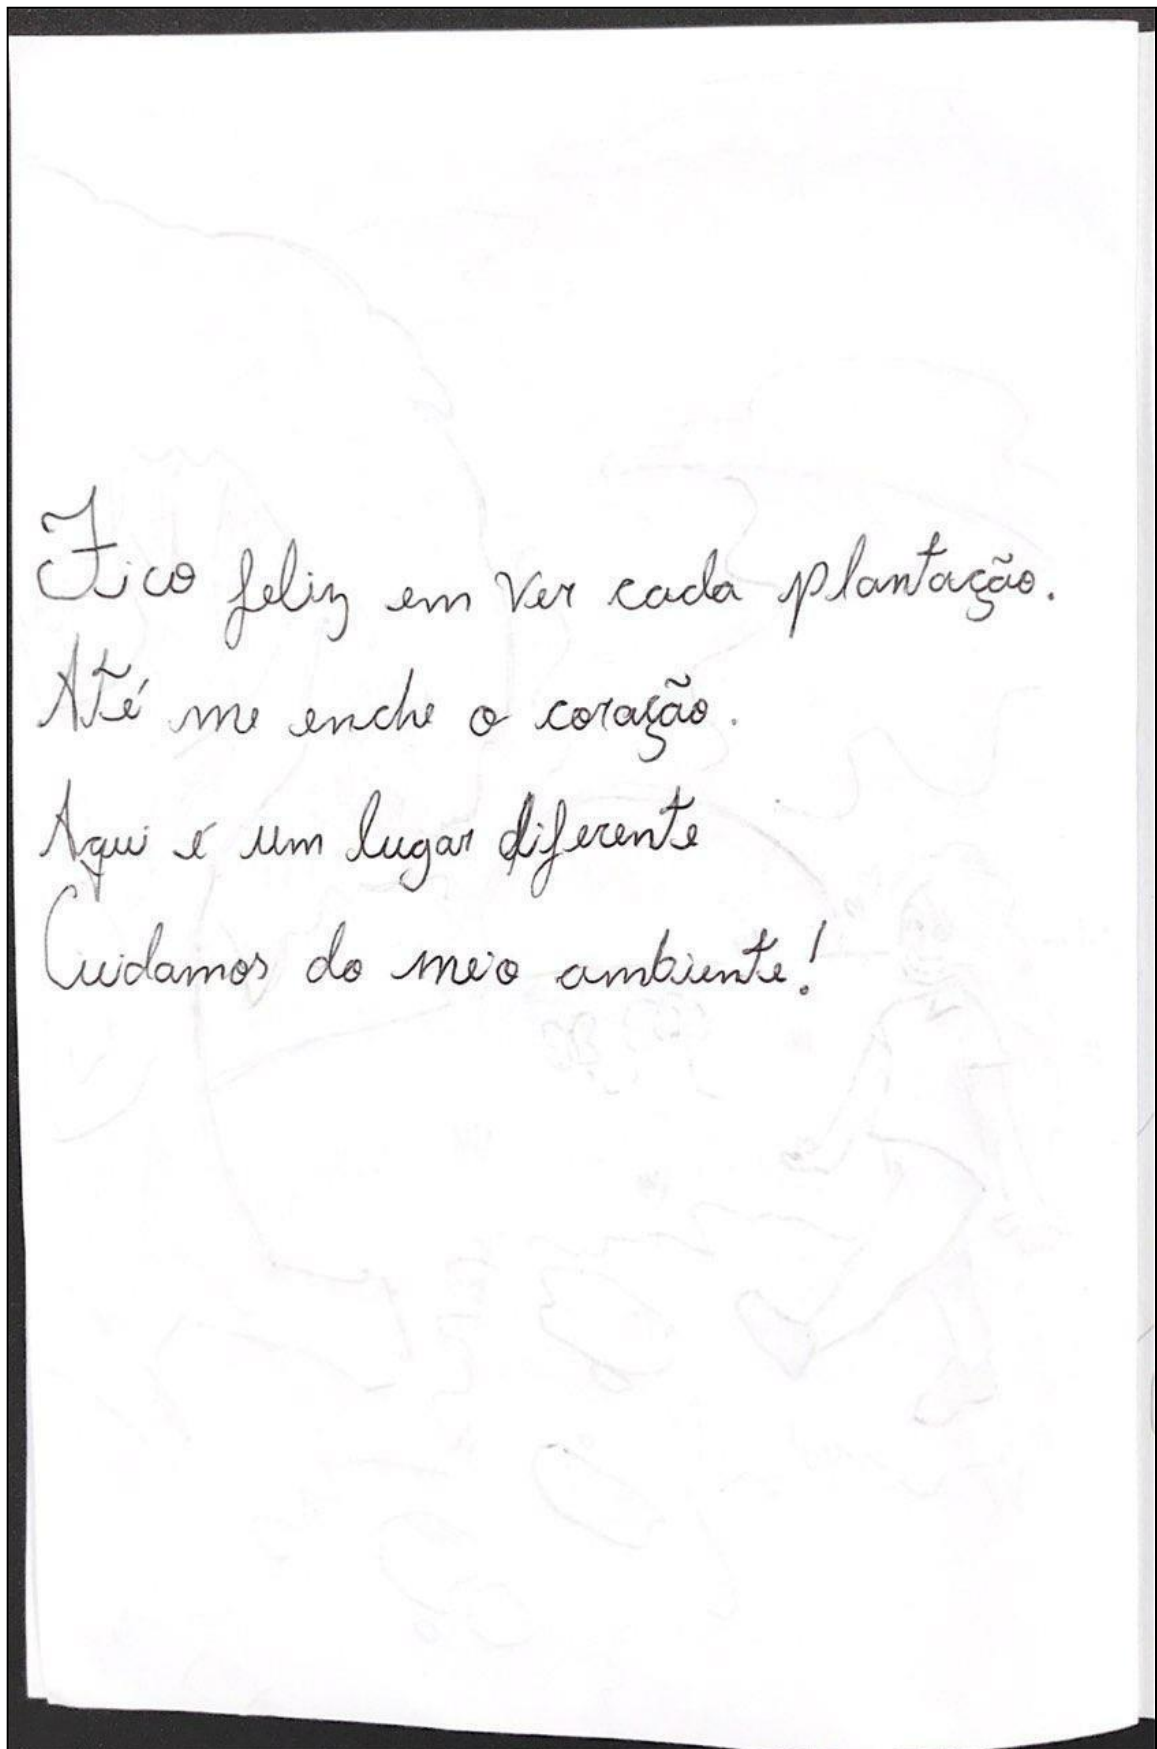 Fico feliz em ver cada plantação.
Até me enche o coração.
Aqui é um lugar diferente
Cuidamos do meio ambiente!